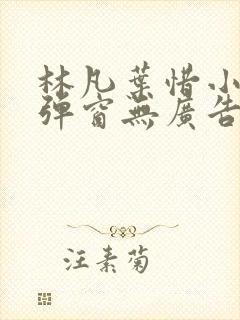 林凡葉惜小
彈窗無廣告
汪素菊